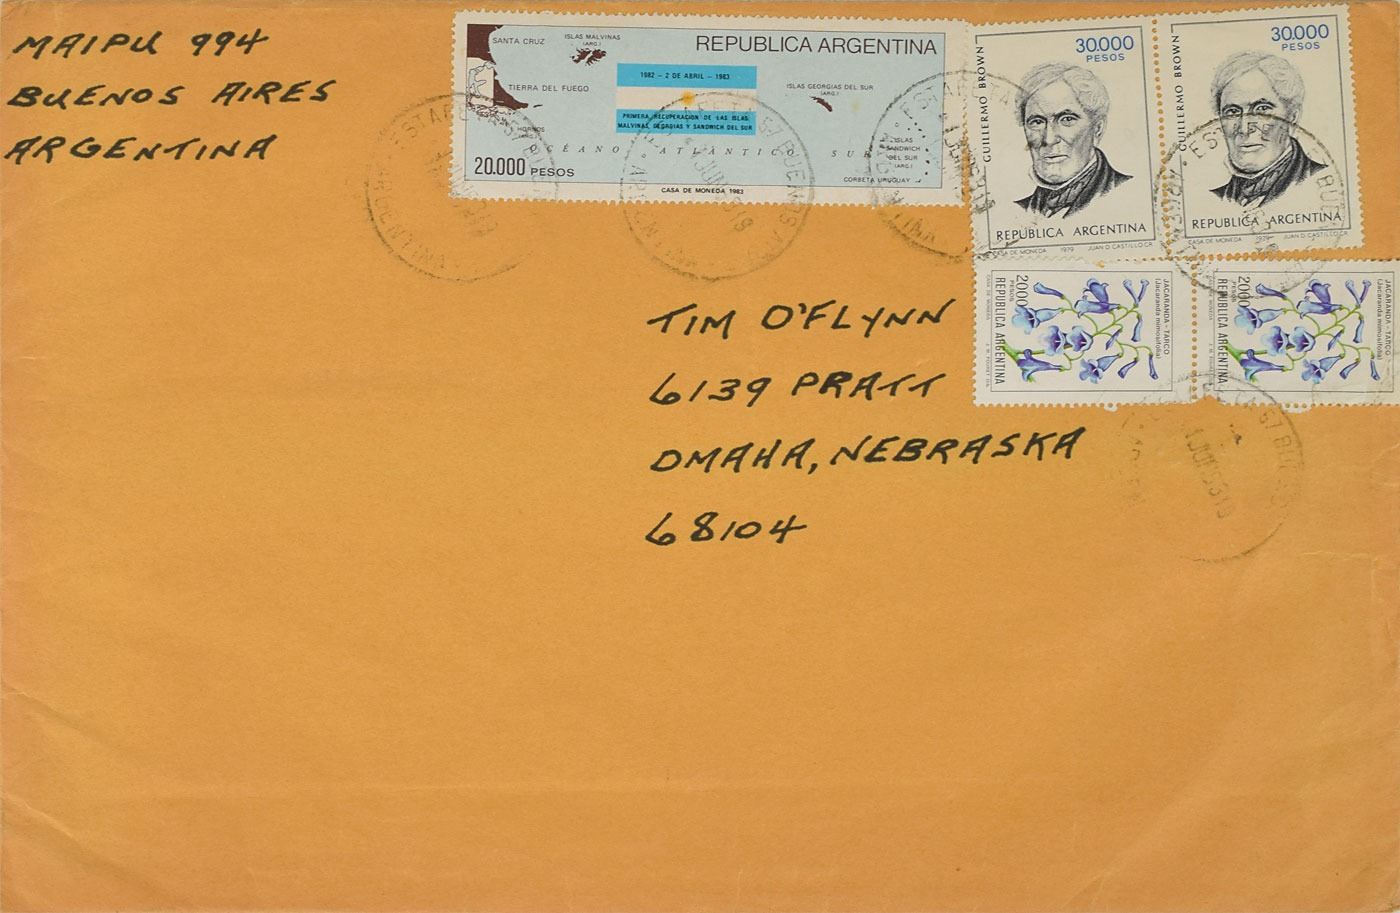 MAIPU 994
BUENOS AIRES
ARGENTINA
SANTA CRUZ
ISLAS MALVINAS
(ARG.)
REPUBLICA ARGENTINA
1982 - 2 DE ABRIL - 1983
TIERRA DEL FUEGO
ISLAS GEORGIAS DEL SUR
(ARG.)
PRIMERA RECUPERACION DE LAS ISLAS
MALVINAS, GEORGIAS Y SANDWICH DEL SUR
HORNOS
OCÉANO ATLÁNTICO SUR
ISLAS
SANDWICH
DEL SUR
(ARG.)
20.000 PESOS
CORBETA URUGUAY
CASA DE MONEDA 1983
GUILLERMO BROWN
30.000
PESOS
REPUBLICA ARGENTINA
CASA DE MONEDA 1979 JUAN D. CASTILLO CR.
GUILLERMO BROWN
30.000
PESOS
REPUBLICA ARGENTINA
CASA DE MONEDA 1979 JUAN D. CASTILLO CR.
JACARANDA - TARCO
(Jacaranda mimosifolia)
2000
PESOS
REPUBLICA ARGENTINA
CASA DE MONEDA
JACARANDA - TARCO
(Jacaranda mimosifolia)
2000
PESOS
REPUBLICA ARGENTINA
TIM O'FLYNN
6139 PRATT
OMAHA, NEBRASKA
68104